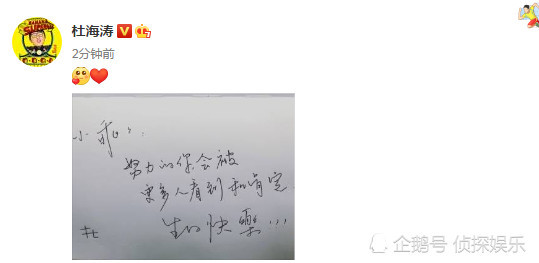 杜海涛
2分钟前
小乖：
努力的你会被
更多人看到和肯定.
生日快乐!!!
企鹅号 侦探娱乐